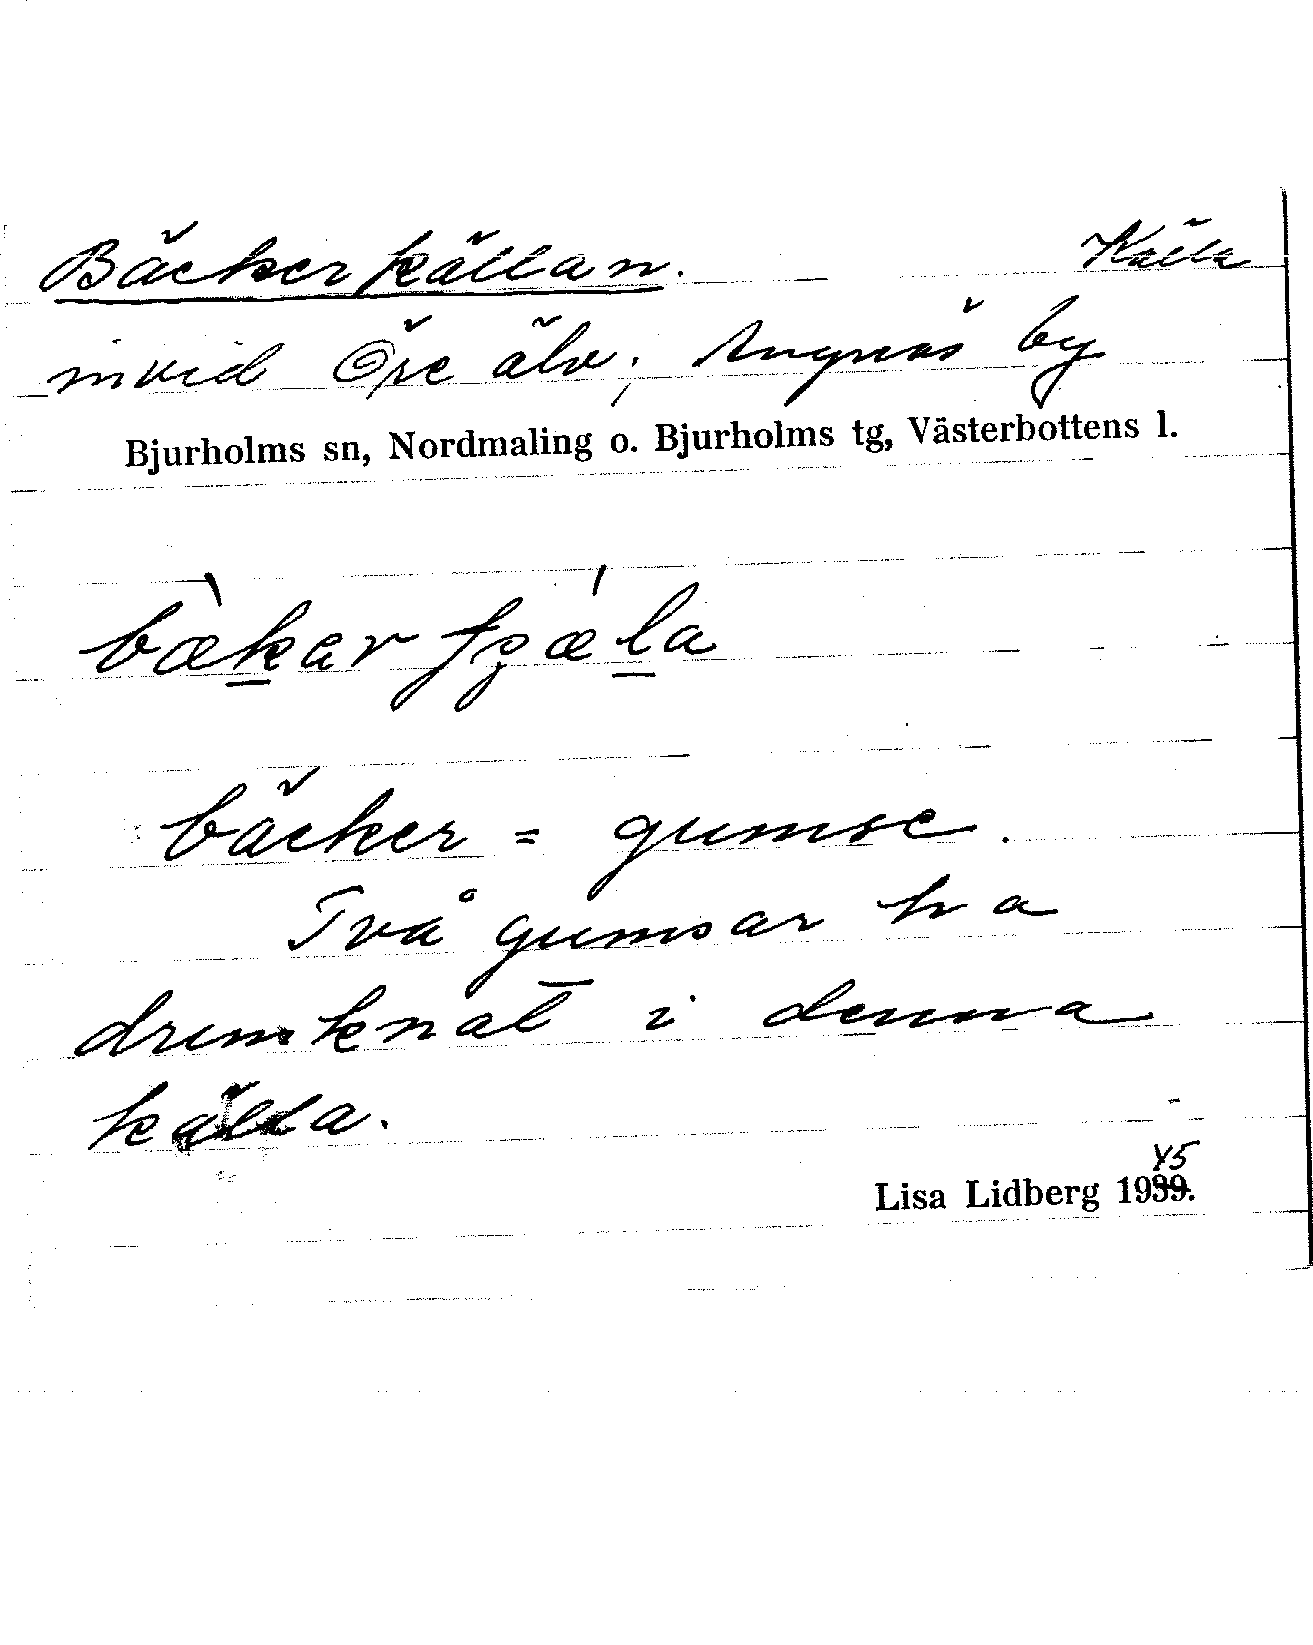 Bäckerkällan. Källa
invid Öre älv; Angnäs by
Bjurholms sn, Nordmaling o. Bjurholms tg, Västerbottens l.
bæ̀kar fʒǽla
bäcker = gumse.
Två gumsar ha
drunknat i denna
källa.
45
Lisa Lidberg 1939.